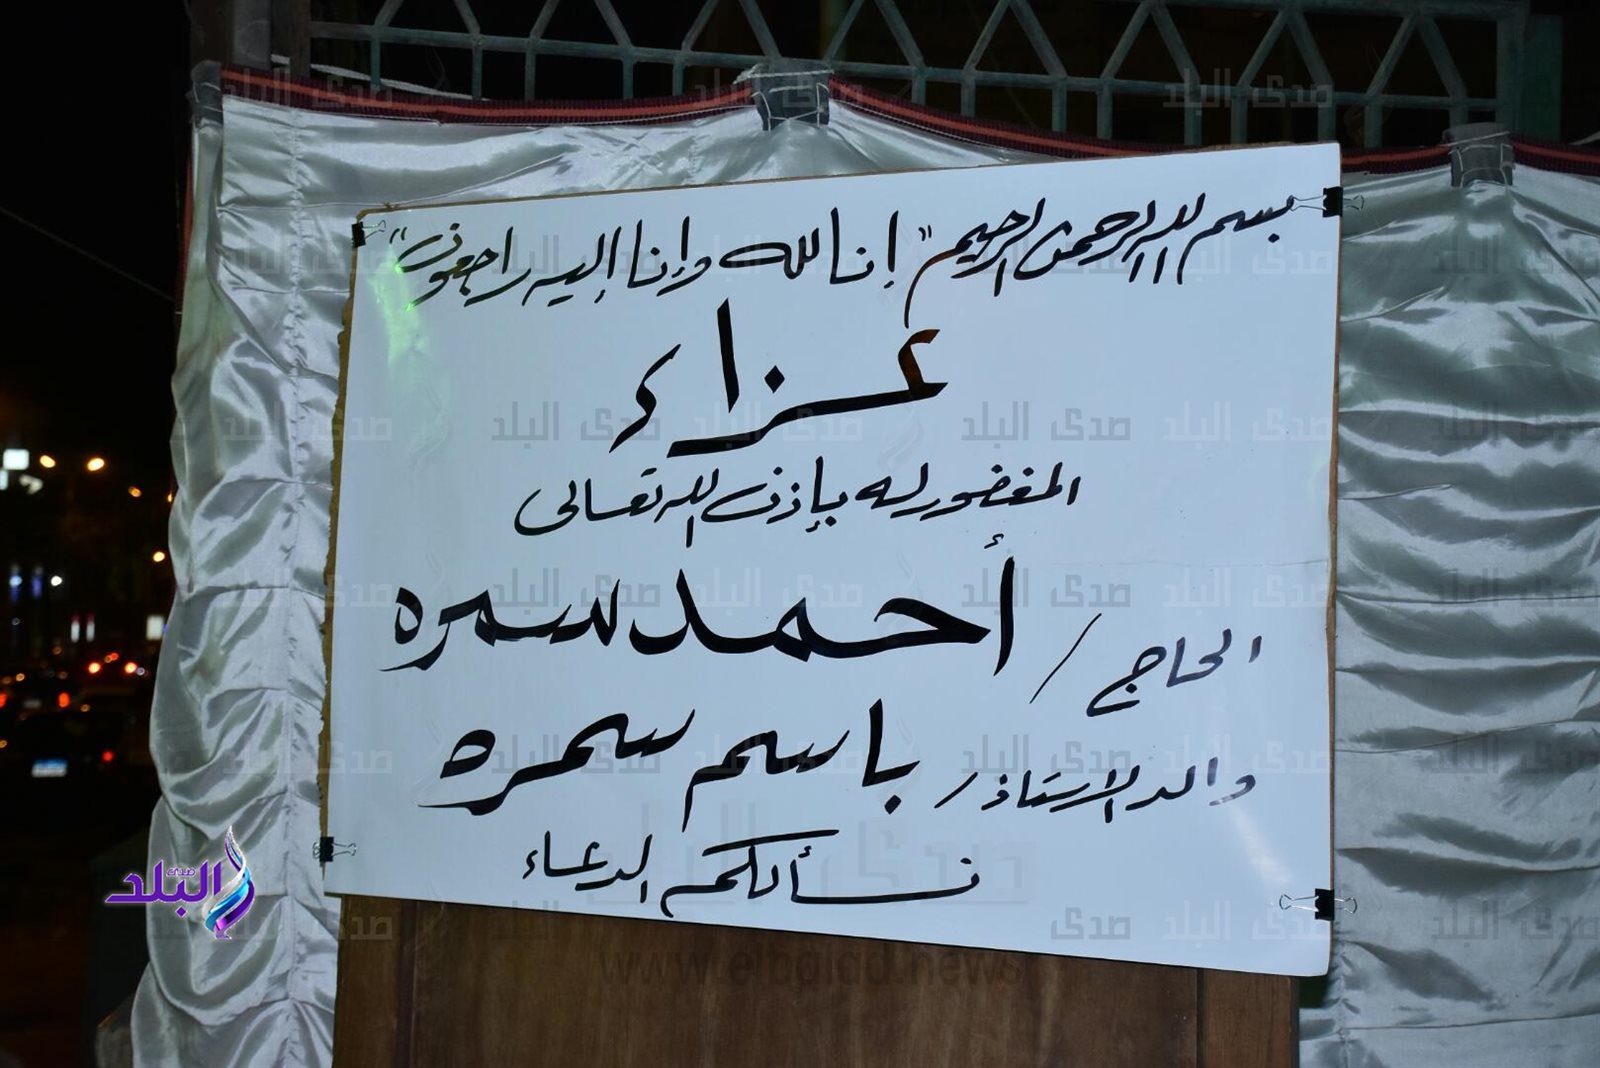 بسم الله الرحمن الرحيم "إنا لله وإنا إليه راجعون"
عزاء
المغفور له بإذن الله تعالى
الحاج / أحمد سمره
والد الاستاذ / باسم سمره
نسألكم الدعاء
صدى البلد
www.elbalad.news